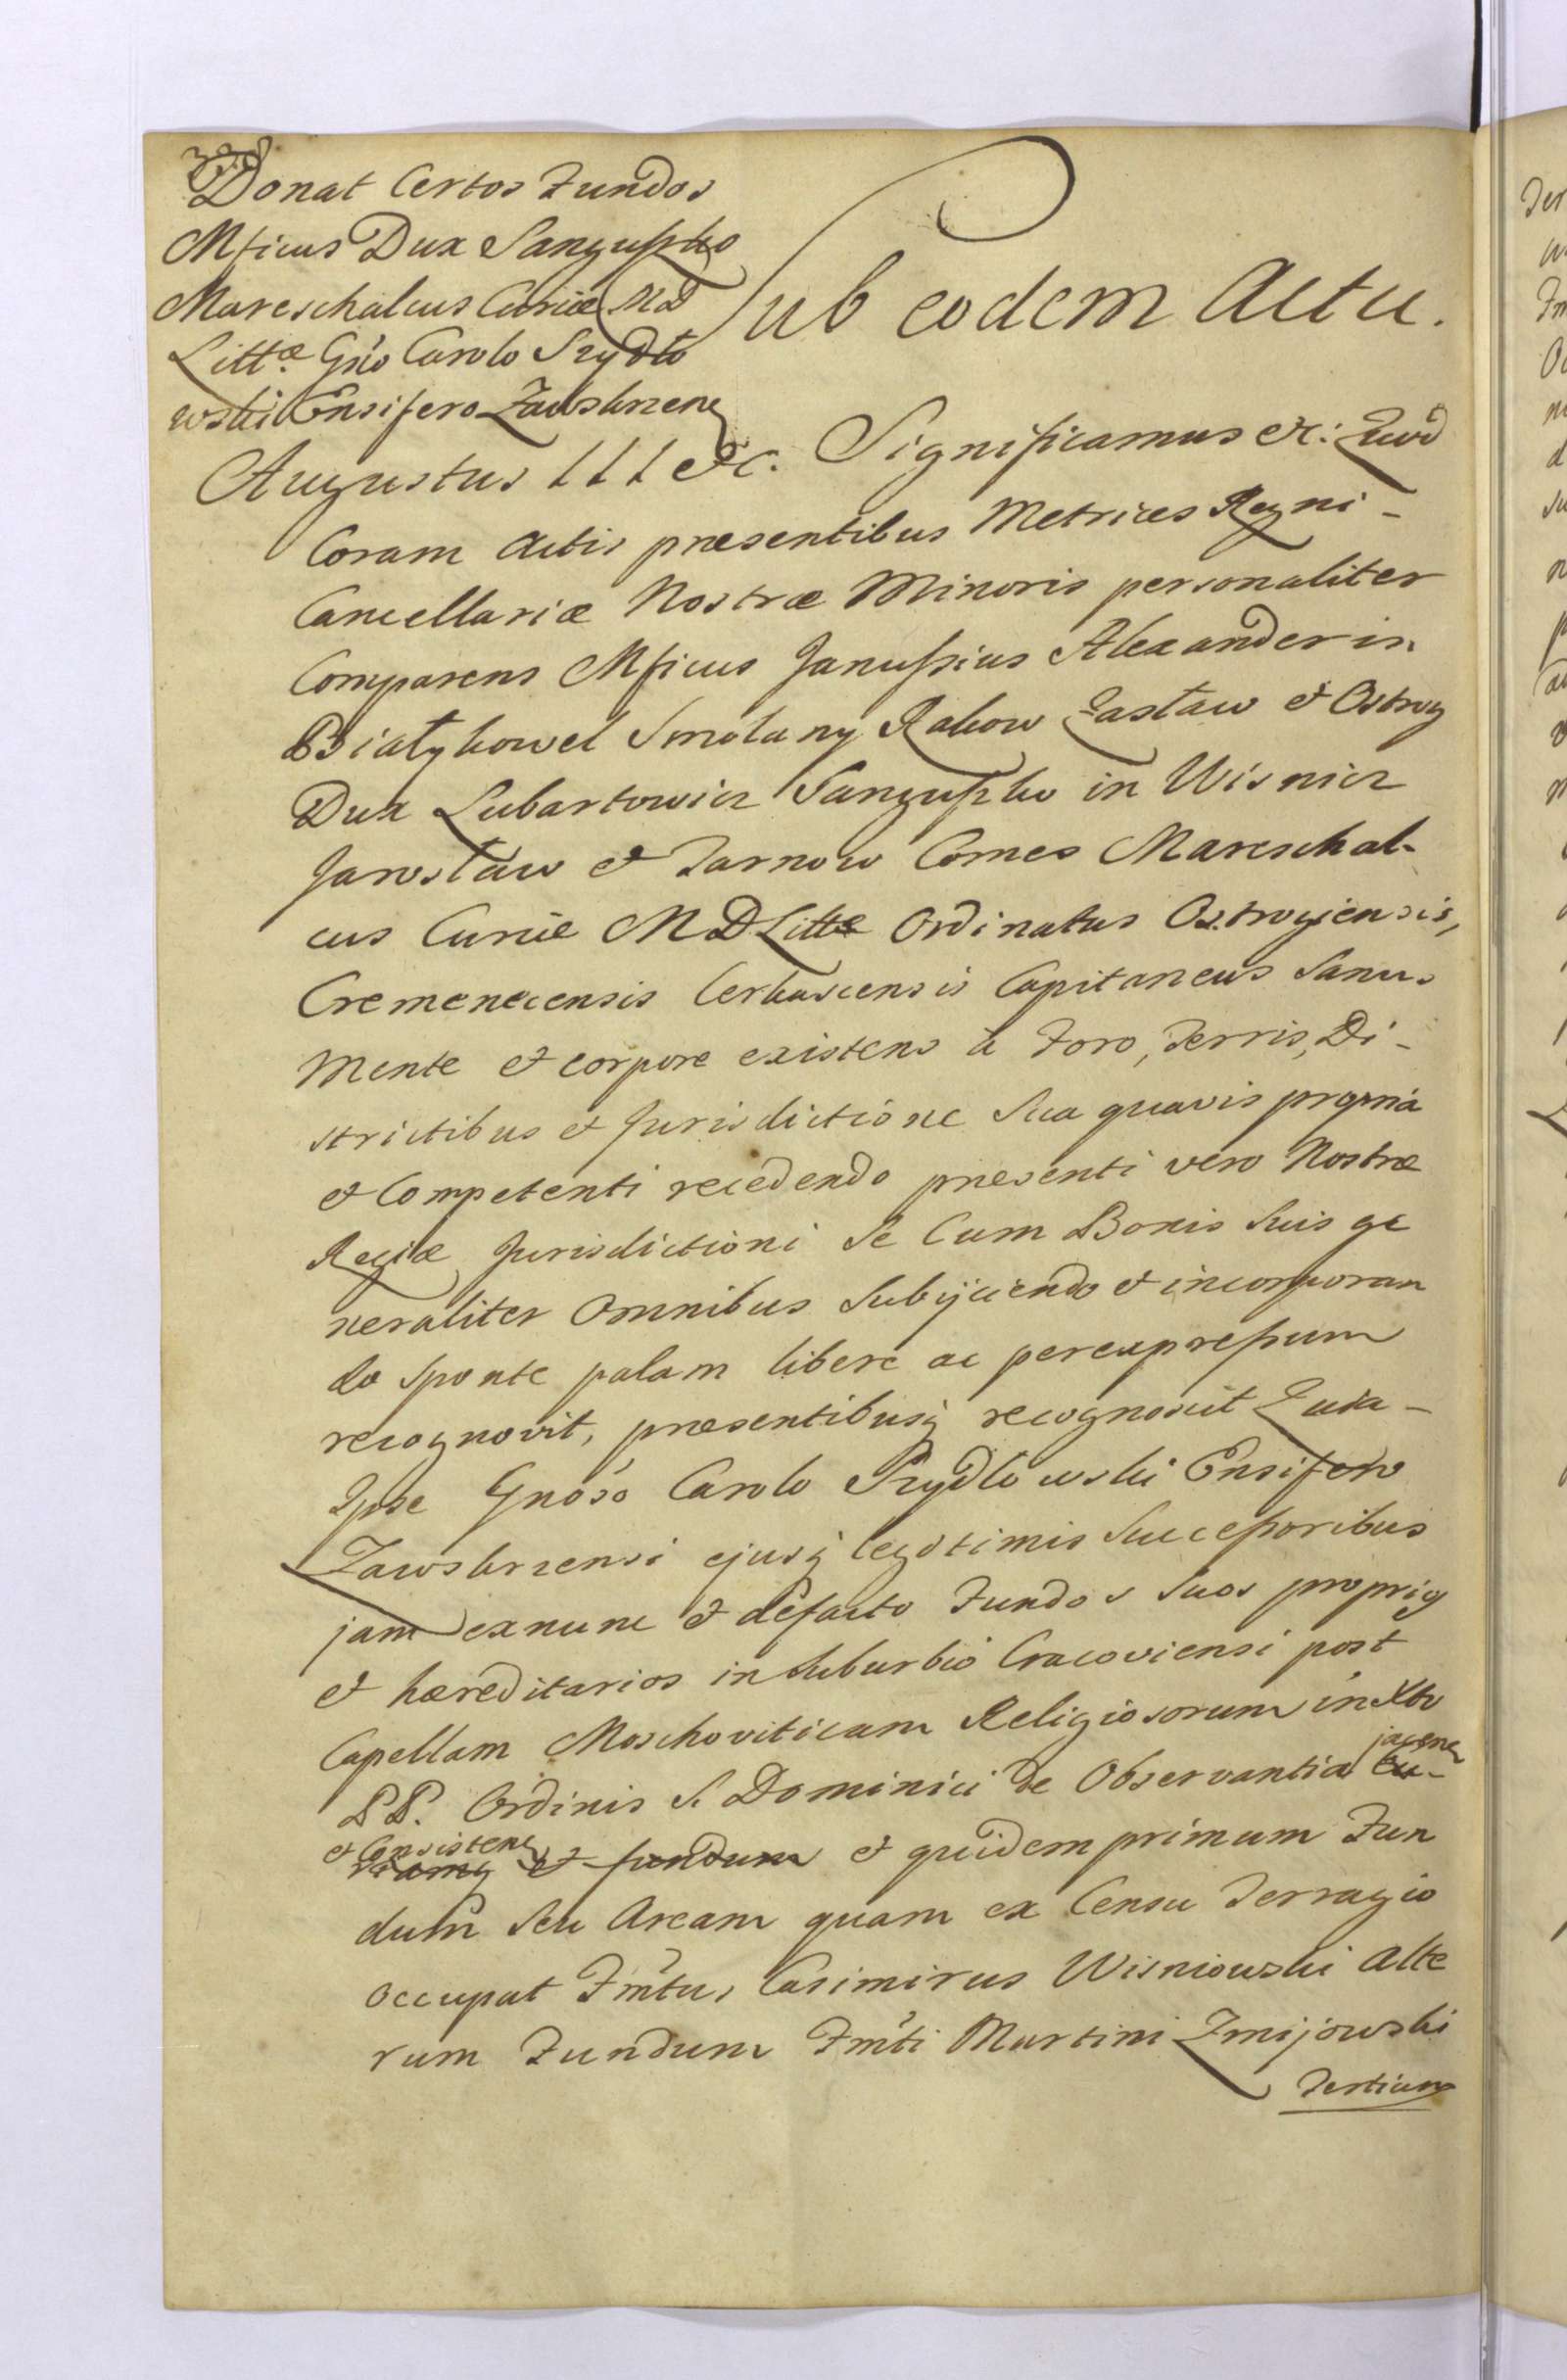 Donat Certos Fundos
Mficus Dux Sanguszko
Mareschalcus Curiæ M D
Littæ Gnso Carolo Szydło
wski Ensifero Zawskrzenз
Sub eodem Actu.
Augustus III &c. Significamus &c: Quod
Coram Actis præsentibus Metrices Regni -
Cancellariæ Nostræ Minoris personaliter
Comparens Mficus Janussius Alexander in
Białykowel Smolany Rakow Zasław et Ostrog
Dux Lubartowicz Sanguszko in Wisnicz
Jarosław et Tarnow Comes Mareschal-
cus Curiæ M D Littæ Ordinatus Ostrogiensis,
Cremenecensis Cerkascensis Capitaneus Sanus
Mente et corpore existens à Foro, Terris, Di-
strictibus et Jurisdictione Sua quavis propriá
et Competenti recedendo præsenti vero Nostræ
Regiæ Jurisdictioni Se Cum Bonis Suis ge
neraliter Omnibus Subijciendo et incorporan
do Sponte palam libere ac perexpressum
recognovit, præsentibusq recognoscit Quia -
Ipse Gnoso Carolo Szydłowski Ensifero
Zawskrzensi ejusq legitimis Successoribus
jam exnunc et defacto Fundos Suos proprios
et hæreditarios in Suburbio Cracoviensi post
Capellam Moschoviticam Religiosorum in Xto
PP. Ordinis S. Dominici de Observantia jacenз
et Consistenз et fundum et quidem primum Fun
dum Seu Aream quam ex Censu Terragio
occupat Fmtus Casimirus Wisniowski Alte
rum Fundum Fmti Martini Zmijowski
Tertium